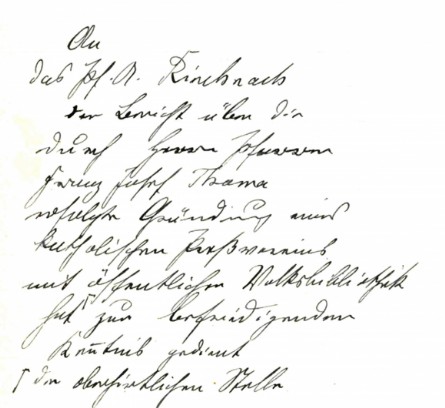 An
das Pf. A. Kirchnach
der Bericht über die
durch Herrn Pfarrer
Franz Josef Thoma
erfolgte Gründung eines
katholischen Preßvereins
mit öffentlicher Volksbibliothek
hat zur befriedigenden
Kenntnis gedient
der oberhirtlichen Stelle